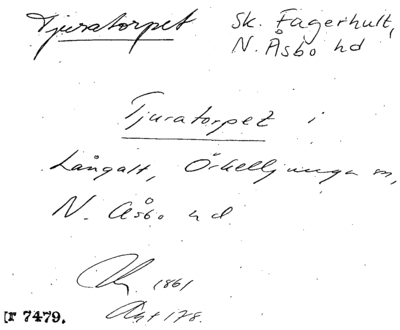 Tjuratorpet Sk. Fagerhult,
N. Åsbo hd
Tjuratorpet i
Långalt, Örkelljunga sn,
N. Åsbo hd
1861
178.
7479.